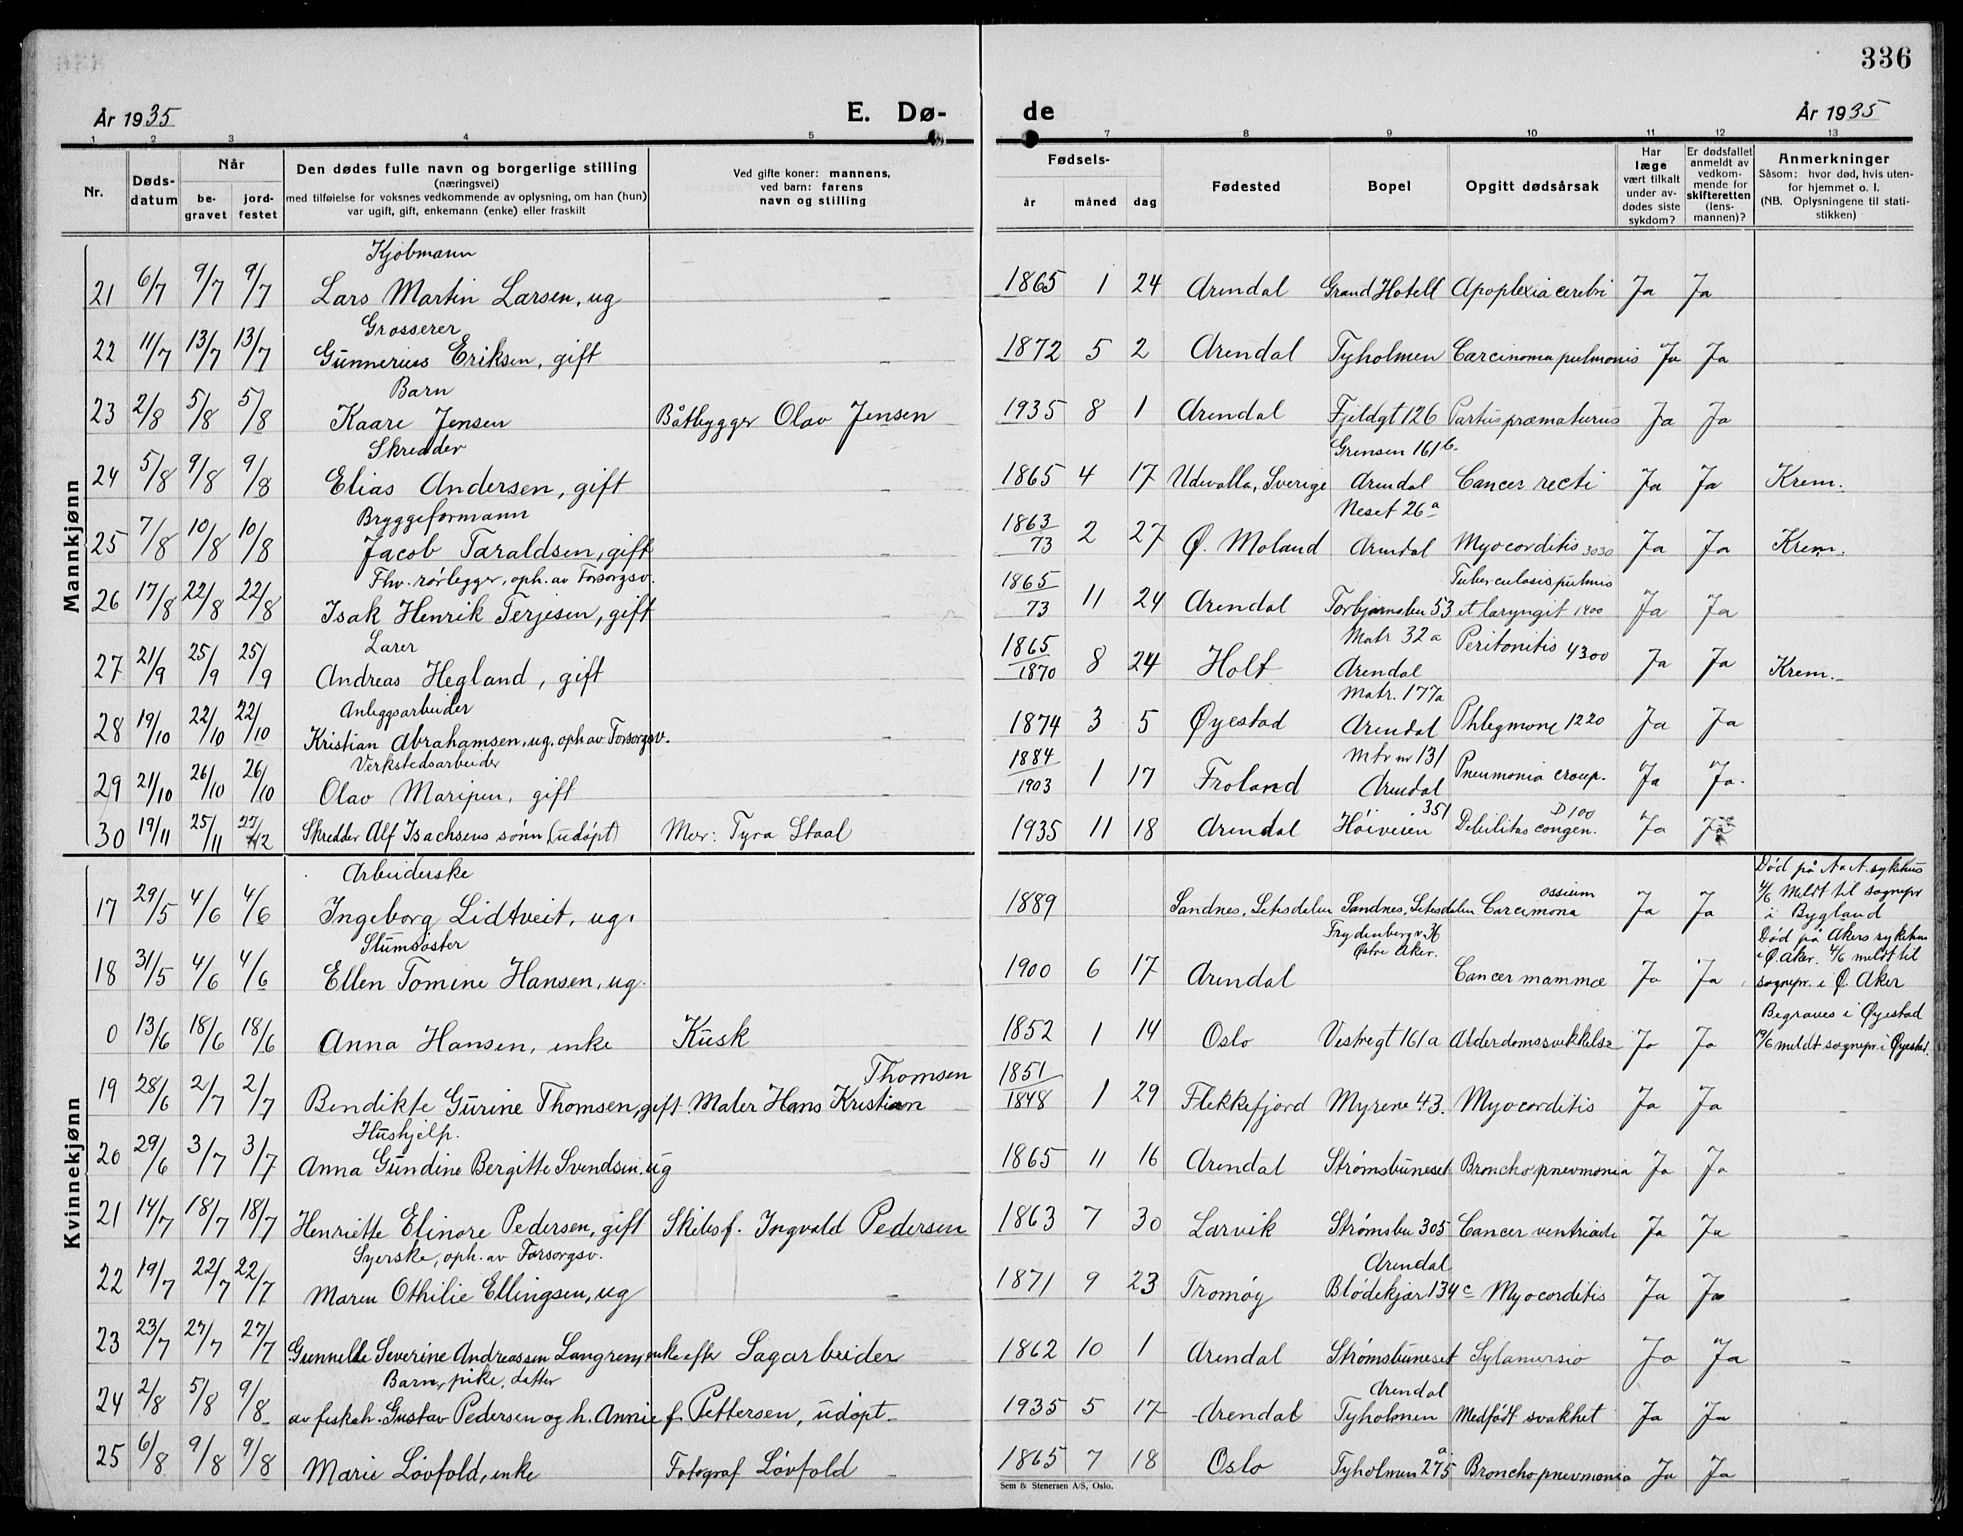 336
År 1935 E. Dø- de År 1935
1 2 3 4 5 7 8 9 10 11 12 13
Nr. Døds-datum Når be-gravet jord-festet Den dødes fulle navn og borgerlige stilling (næringsvei) med tilføielse for voksnes vedkommende av oplysning, om han (hun) var ugift, gift, enkemann (enke) eller fraskilt Ved gifte koner: mannens, ved barn: farens navn og stilling Fødsels- år måned dag Fødested Bopel Opgitt dødsårsak Har læge vært tilkalt under av-dødes siste sykdom? Er dødsfallet anmeldt av vedkom-mende for skifteretten (lens-mannen)? Anmerkninger Såsom: hvor død, hvis uten-for hjemmet o. l. (NB. Oplysningene til stati-stikken)
Mannkjønn
Kjøbmann
21 6/7 9/7 9/7 Lars Martin Larsen, ug — 1865 1 24 Arendal Grand Hotell Apoplexia cerebri Ja Ja —
Grosserer
22 11/7 13/7 13/7 Gunnerius Eriksen, gift — 1872 5 2 Arendal Tyholmen Carcinoma pulmonis Ja Ja —
Barn
23 2/8 5/8 5/8 Kaare Jensen Båtbygger Olav Jensen 1935 8 1 Arendal Fjeldgt 126 Partus præmaturus Ja Ja —
Skredder Grensen 161 b.
24 5/8 9/8 9/8 Elias Andersen, gift — 1865 4 17 Udevalla, Sverige Arendal Cancer recti Ja Ja Krem.
Bryggeformann Neset 26 a
25 7/8 10/8 10/8 Jacob Taraldsen, gift — 1863/73 2 27 Ø. Moland Arendal Myocorditis 3030 Ja Ja Krem.
Fhv. rørlegger, oph. av Forsorgsv. Tuberculosis pulmis
26 17/8 22/8 22/8 Isak Henrik Terjesen, gift — 1865/73 11 24 Arendal Torbjørnsbu 53 et laryngit 1400 Ja Ja —
Lærer Matr 32 a
27 21/9 25/9 25/9 Andreas Hegland, gift — 1865/1870 8 24 Holt Arendal Peritonitis 4300 Ja Ja Krem.
Anleggsarbeider Matr. 177a
28 19/10 22/10 22/10 Kristian Abrahamsen, ug. oph av Forsorgsv. — 1874 3 5 Øyestad Arendal Phlegmone 1220 Ja Ja —
Verkstedsarbeider Mtr nr 131
29 21/10 26/10 26/10 Olav Maripen, gift — 1884/1903 1 17 Froland Arendal Pneumonia croup. Ja Ja. —
30 19/11 25/11 Skredder Alf Isachsens sønn (udøpt) Mor: Tyra Staal 1935 11 18 Arendal Høiveien 351 Debilitas congen. D 100 Ja Ja —
Kvinnekjønn
Arbeiderske
17 29/5 4/6 4/6 Ingeborg Lidtveit, ug. — 1889 Sandnes, Setesdalen Sandnes, Setesdalen Carcimona ossium Ja Ja Død på A.A. sykehus 4/6 meldt til sognepr i Bygland
Slumsøster Frydenbergv. 36 Østre Aker.
18 31/5 4/6 4/6 Ellen Tomine Hansen, ug. — 1900 6 17 Arendal Cancer mammæ Ja Ja Død på Akers sykehus i Ø. Aker. 4/6 meldt til sognepr. i Ø. Aker
0 13/6 18/6 18/6 Anna Hansen, enke Kusk 1852 1 14 Oslo Vestregt 161a Alderdomssvekkelse Ja Ja Begraves i Øyestad 19/6 meldt sognepr. i Øyestad.
19 28/6 2/7 2/7 Bendikte Gurine Thomsen, gift Maler Hans Kristian Thomsen 1851/1848 1 29 Flekkefjord Myrene 43. Myocorditis Ja Ja —
Hushjelp.
20 29/6 3/7 3/7 Anna Gundine Bergitte Svendsen. ug — 1865 11 16 Arendal Strømsbuneset Bronchopnevmonia Ja Ja —
21 14/7 18/7 18/7 Henriette Elinore Pedersen, gift Skibsf. Ingvald Pedersen 1863 7 30 Larvik Strømsbu 305 Cancer Ja Ja —
Syerske, oph. av Forsorgsv. Arendal
22 19/7 22/7 22/7 Maren Othilie Ellingsen, ug — 1871 9 23 Tromøy Blødekjær 134 c Myocorditis Ja Ja —
23 23/7 27/7 27/7 Gunnelle Severine Andreassen enke efter Sagarbeider 1862 10 1 Arendal Strømsbuneset Ja Ja —
Barn, pike, datter Arendal
24 2/8 5/8 9/8 av fiskeh. Gustav Pedersen og h. Annie f. Pettersen, udøpt 1935 5 17 Arendal Tyholmen Medfødt svakhet Ja Ja —
25 6/8 9/8 9/8 Marie Løvfold, enke Fotograf Løvfold — 1865 7 18 Oslo Tyholmen 275 a Bronchopnevmonia Ja Ja —
Sem & Stenersen A/S, Oslo.